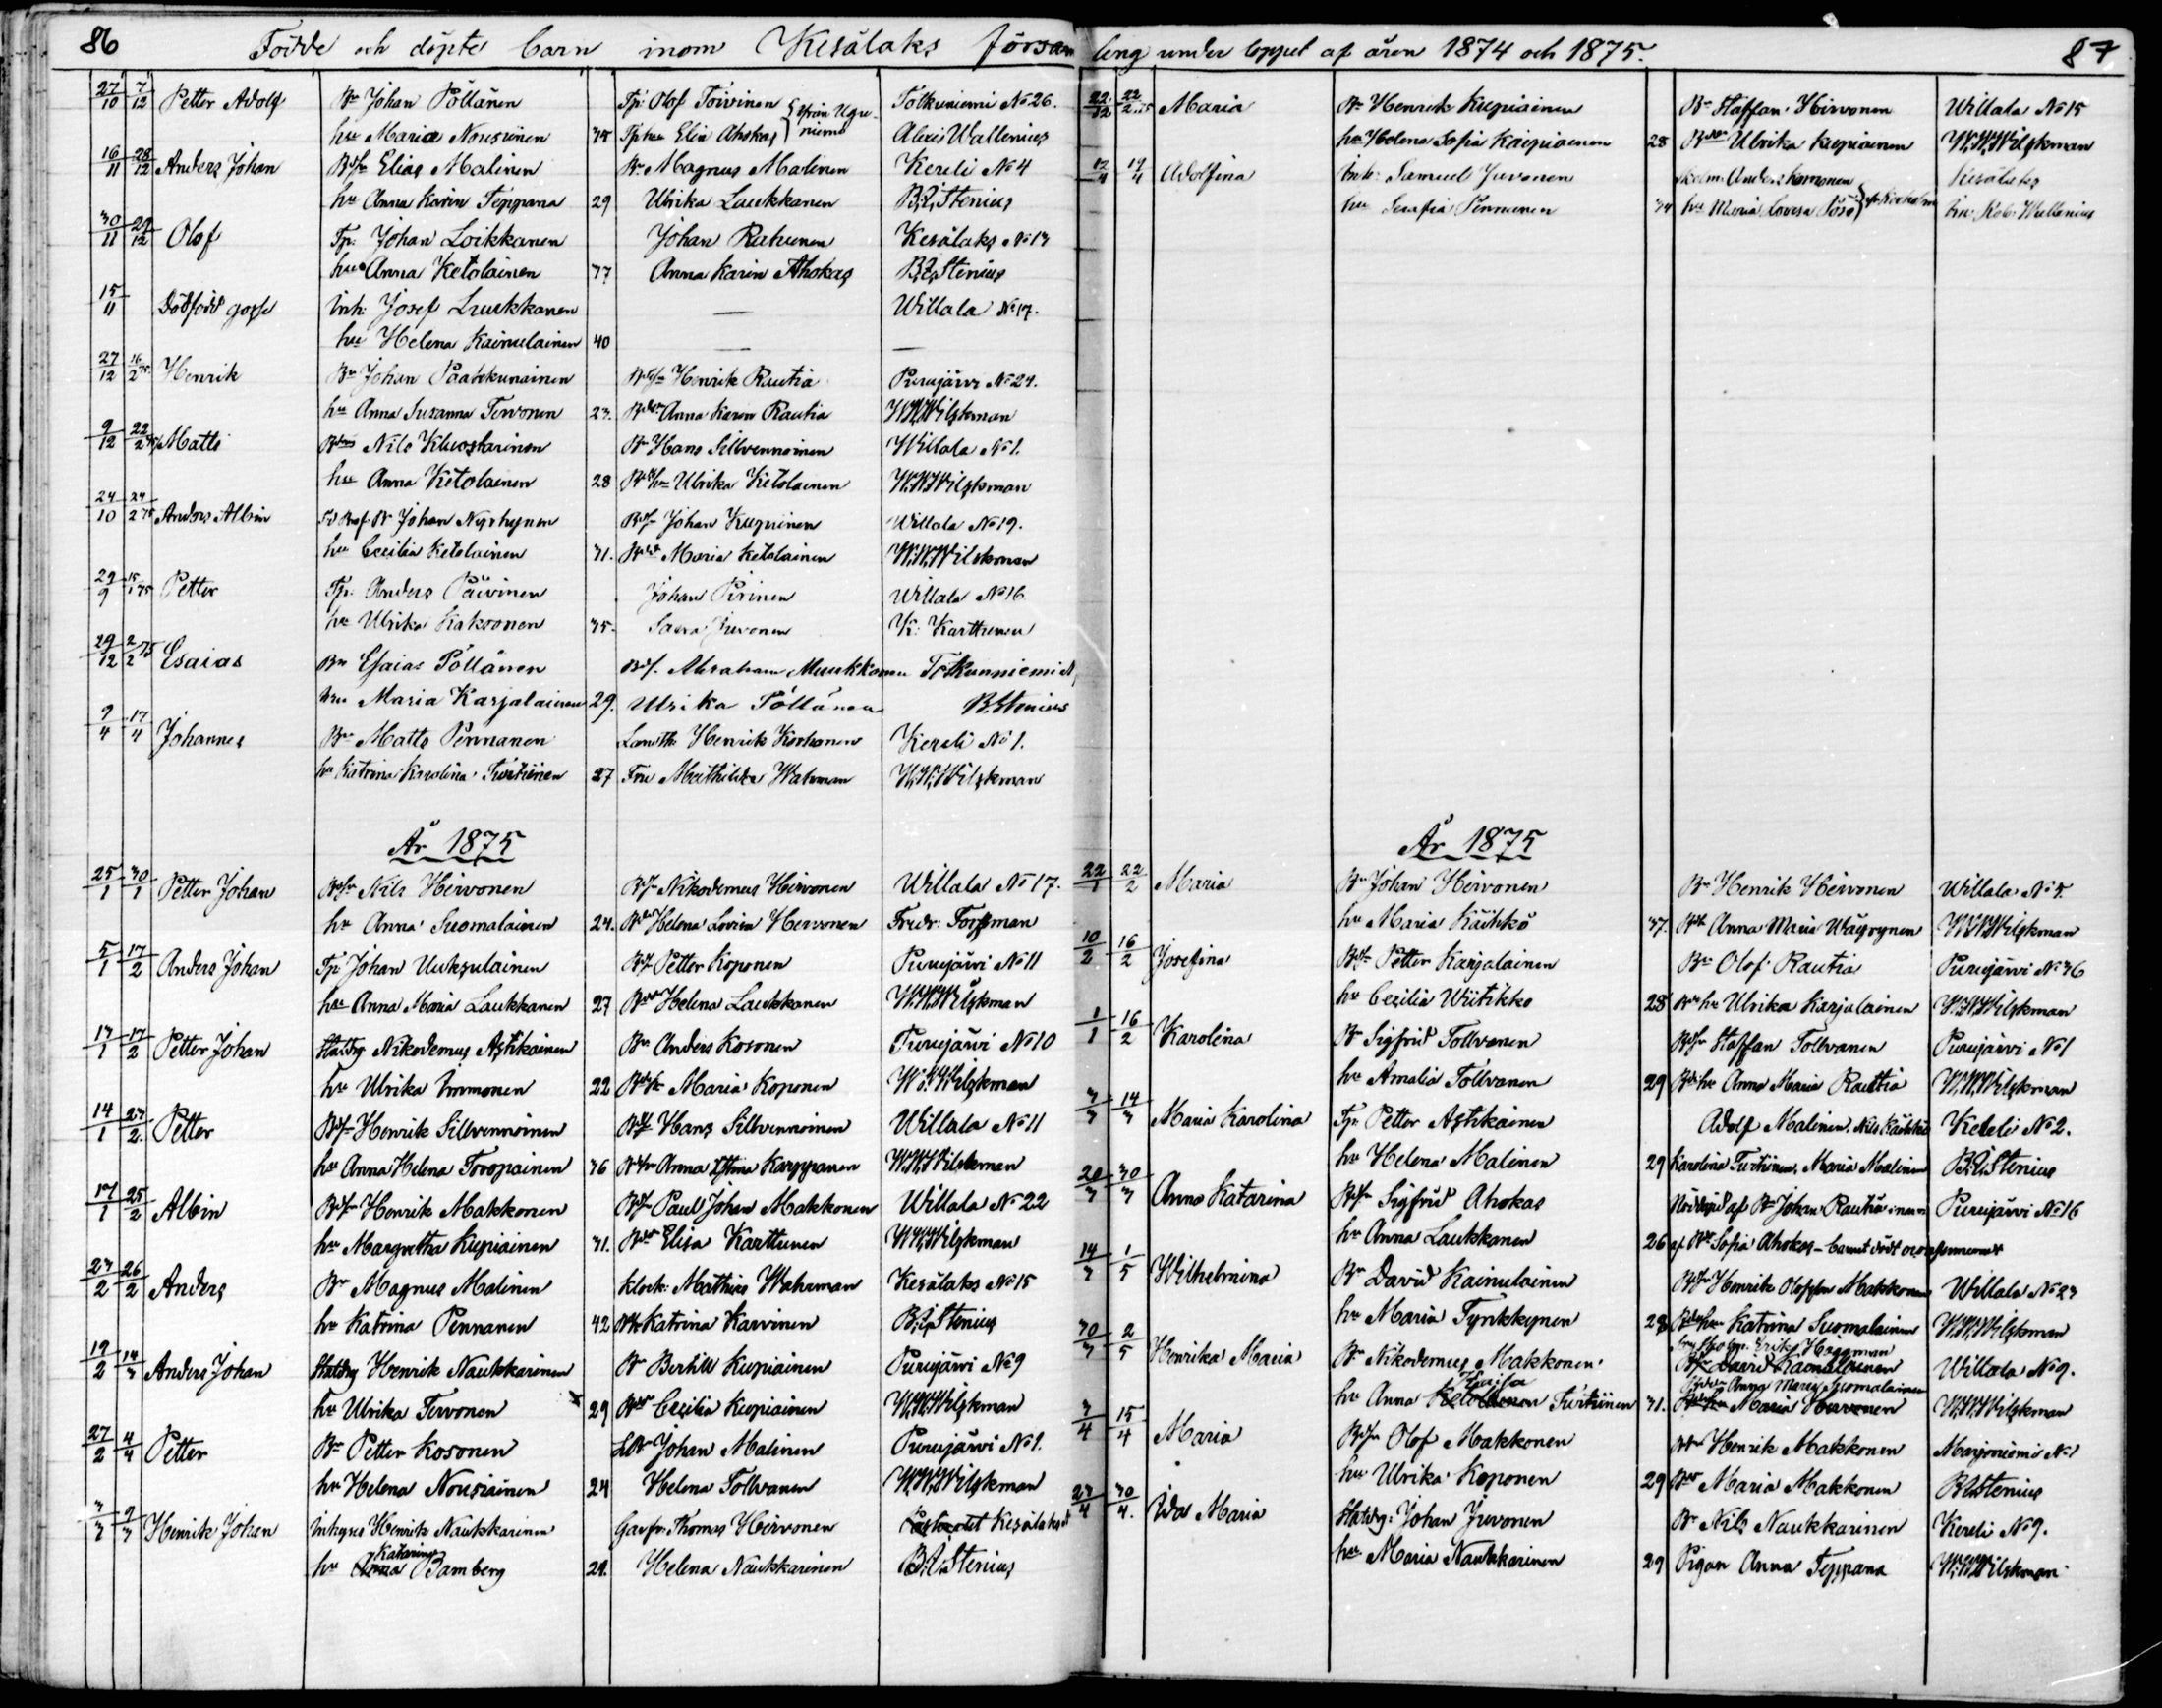 86 Födde och döpte barn inom Kesälaks försam
27/10 7/12 Petter Adolf Bn Johan Pöllänen Tp: Olof Toivinen från Ugu- Totkuniemi No 26.
hu Maria Nousiinen 35 Tp hu Elin Ahokas niemi Alex: Wallenius
16/11 28/12 Anders Johan Bdsn Elias Malinen Bn Magnus Malinen Kereli No 4
hu Anna Karin Teppana 29 Ulrika Laukkanen B. Z. Stenius
30/11 29/12 Olof Tp: Johan Loikkanen Johan Rahunen Kesälaks No 13
hu Anna Ketolainen 37 Anna Karin Ahokas B. Z. Stenius
15/11 Dödfödd gosse Inh: Josef Laukkanen — Willala No 17.
hu Helena Kainulainen 40 — —
27/12 16/2 75 Henrik Bn Johan Paakkunainen Bdsn Henrik Rautia Purujärvi No 24.
hu Anna Susanna Tervonen 23. Anna Karin Rautia W. W. Wilskman
9/12 22/2 75 Matts Nils Kluostarinen Bn Hans Silvennoinen Willala No 1.
hu Anna Ketolainen 28 Ulrika Ketolainen W. W. Wilskman
24/10 24/2 75 Anders Albin Johan Nyrhynen Bdsn Johan Kupiinen Willala No 19.
hu Cecilia Ketolainen 31. Maria Ketolainen W. W. Wilskman
29/9 15/1 75 Petter Tp: Anders Päivinen Johan Pirinen Willala No 16
hu Ulrika Kakoonen 35. Saara Juvonen K: Karttunen
29/12 2/2 75 Esaias Bn Esaias Pöllänen Bdsn. Abraham Muukkonen Totkunniemi
hu Maria Karjalainen 29. Ulrika Pöllänen B. Stenius
9/4 17/4 Johannes Bn Matts Pennanen Landth. Henrik Korhonen Kereli No 1.
hu Katrina Karolina Turtiinen 27 Fru Mathilda Wahrman W. W. Wilskman
År 1875
25/1 30/1 Petter Johan Bdsn Nils Hirvonen Bdsn Nikodemus Hirvonen Willala No 17.
hu Anna Suomalainen 24. Helena Lovisa Hirvonen Fredr: Forssman
5/1 17/2 Anders Johan Tp: Johan Uuksulainen Bdsn Petter Koponen Purujärvi No 11
hu Anna Maria Laukkanen 27 Helena Laukkanen W. W. Wilskman
13/1 17/2 Petter Johan Statdrg Nikodemus Astikainen Bn Anders Kosonen Purujärvi No 10
hu Ulrika Immonen 22 Maria Koponen W. W. Wilskman
14/1 23/2 Petter Bdsn Henrik Silvennoinen Bdsn Hans Silvennoinen Willala No 11
hu Anna Helena Toropainen 36 Anna Stina Karppanen W. W. Wilskman
17/1 25/2 Albin Bdsn Henrik Makkonen Bdsn Paul Johan Makkonen Willala No 22
hu Margretha Kupiainen 31. Elisa Karttunen W. W. Wilskman
23/2 26/2 Anders Bn Magnus Malinen Klock: Mathias Wahrman Kesälaks No 15
hu Katrina Pennanen 42 Katrina Karvinen B. Z. Stenius
19/2 14/3 Anders Johan Statdrg Henrik Naukkarinen Bn Bertill Kupiainen Purujärvi No 9
hu Ulrika Tervonen 29 Cecilia Kupiainen W. W. Wilskman
27/2 4/4 Petter Bn Petter Kosonen Johan Malinen Purujärvi No 1.
hu Helena Nousiainen 24 Helena Tolvanen W. W. Wilskman
3/3 9/3 Henrik Johan Inhyses Henrik Naukkarinen Thomas Hirvonen Kesälaks
Katarina
hu Anna Bamberg 29. Helena Naukkarinen B. Z. Stenius
ling under loppet af åren 1874 och 1875. 87
22/12 22/2 75 Maria Bn Henrik Kupiainen Bn Staffan Hirvonen Willala No 15
hu Helena Sofia Kaipiainen 28 Ulrika Kupiainen W. W. Wilskman
12/4 19/4 Adolfina Inh: Samuel Juvonen Anders Komonen Kesälaks
hu Serafia Pennanen 34 hu Maria Lovisa Wallenius
År 1875
22/1 22/2 Maria Bn Johan Hirvonen Bn Henrik Hirvonen Willala No 5.
hu Maria Käihkö 37. Anna Maria Wäyrynen W. W. Wilskman
10/2 16/2 Josefina Bdsn Petter Karjalainen Bn Olof Rautia Purujärvi No 36
hu Cecilia Wiitikko 28 Ulrika Karjalainen W. W. Wilskman
1/1 16/2 Karolina Bn Sigfrid Tolvanen Bdsn Staffan Tolvanen Purujärvi No 1
hu Amalia Tolvanen 29 Anna Maria Rautia W. W. Wilskman
3/3 14/3 Maria Karolina Tp: Petter Astikainen Adolf Malinen, Nils Käihkö Kereli No 2.
hu Helena Malinen 29 Karolina Turtiinen, Maria Malinen B. Z. Stenius
20/3 30/3 Anna Katarina Bdsn Sigfrid Ahokas Nöddöpt af Bn Johan Rautiainen Purujärvi No 16
hu Anna Laukkanen 26 af Sofia Ahokas – barnet dödt
14/3 1/5 Wilhelmina Bn David Kainulainen Bdsn Henrik Olofsson Makkonen Willala No 23
hu Maria Tynkkynen 28 Katrina Suomalainen W. W. Wilskman
Erik Häggman
30/3 2/5 Henrika Maria Bn Nikodemus Makkonen David Kainulainen Willala No 9.
Kaisa Anna Maria Suomalainen
hu Anna Ketolainen Turtiinen 31. Maria Hirvonen W. W. Wilskman
3/4 15/4 Maria Bdsn Olof Makkonen Henrik Makkonen Marjoniemi No 1
hu Ulrika Koponen 29 Maria Makkonen B. Z. Stenius
23/4 30/4. Ida Maria Statdrg: Johan Juvonen Bn Nils Naukkarinen Kereli No 9.
hu Maria Naukkarinen 29 Pigan Anna Teppana W. W. Wilskman